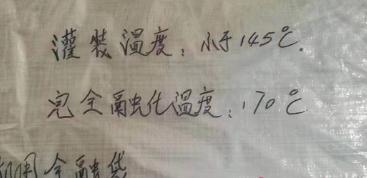 灌装温度：小于145℃.
完全融化温度：170℃
用全融袋